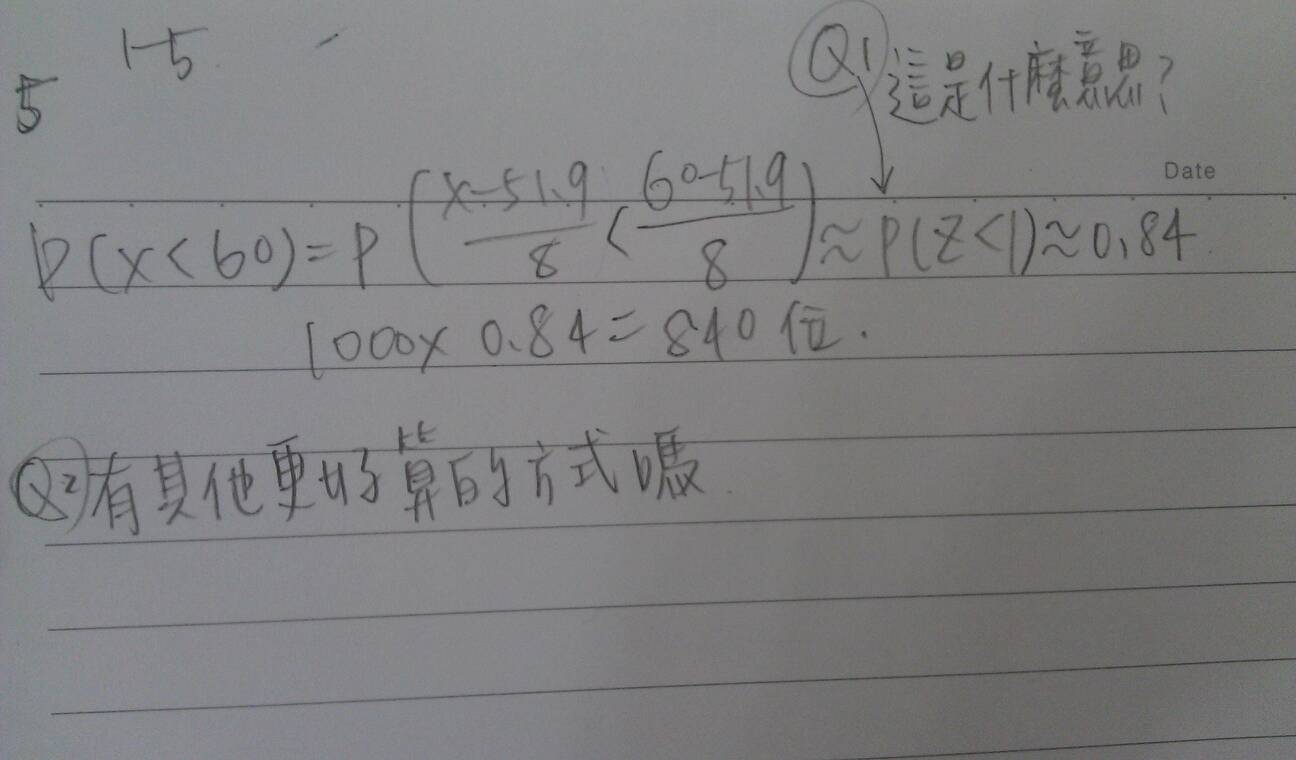 1-5
5
Q1 這是什麼意思?
Date
P(x<60)=P(x-51.9/8 < 60-51.9/8)≈P(Z<1)≈0.84
1000x 0.84=840位.
Q2 有其他更好算的方式嗎